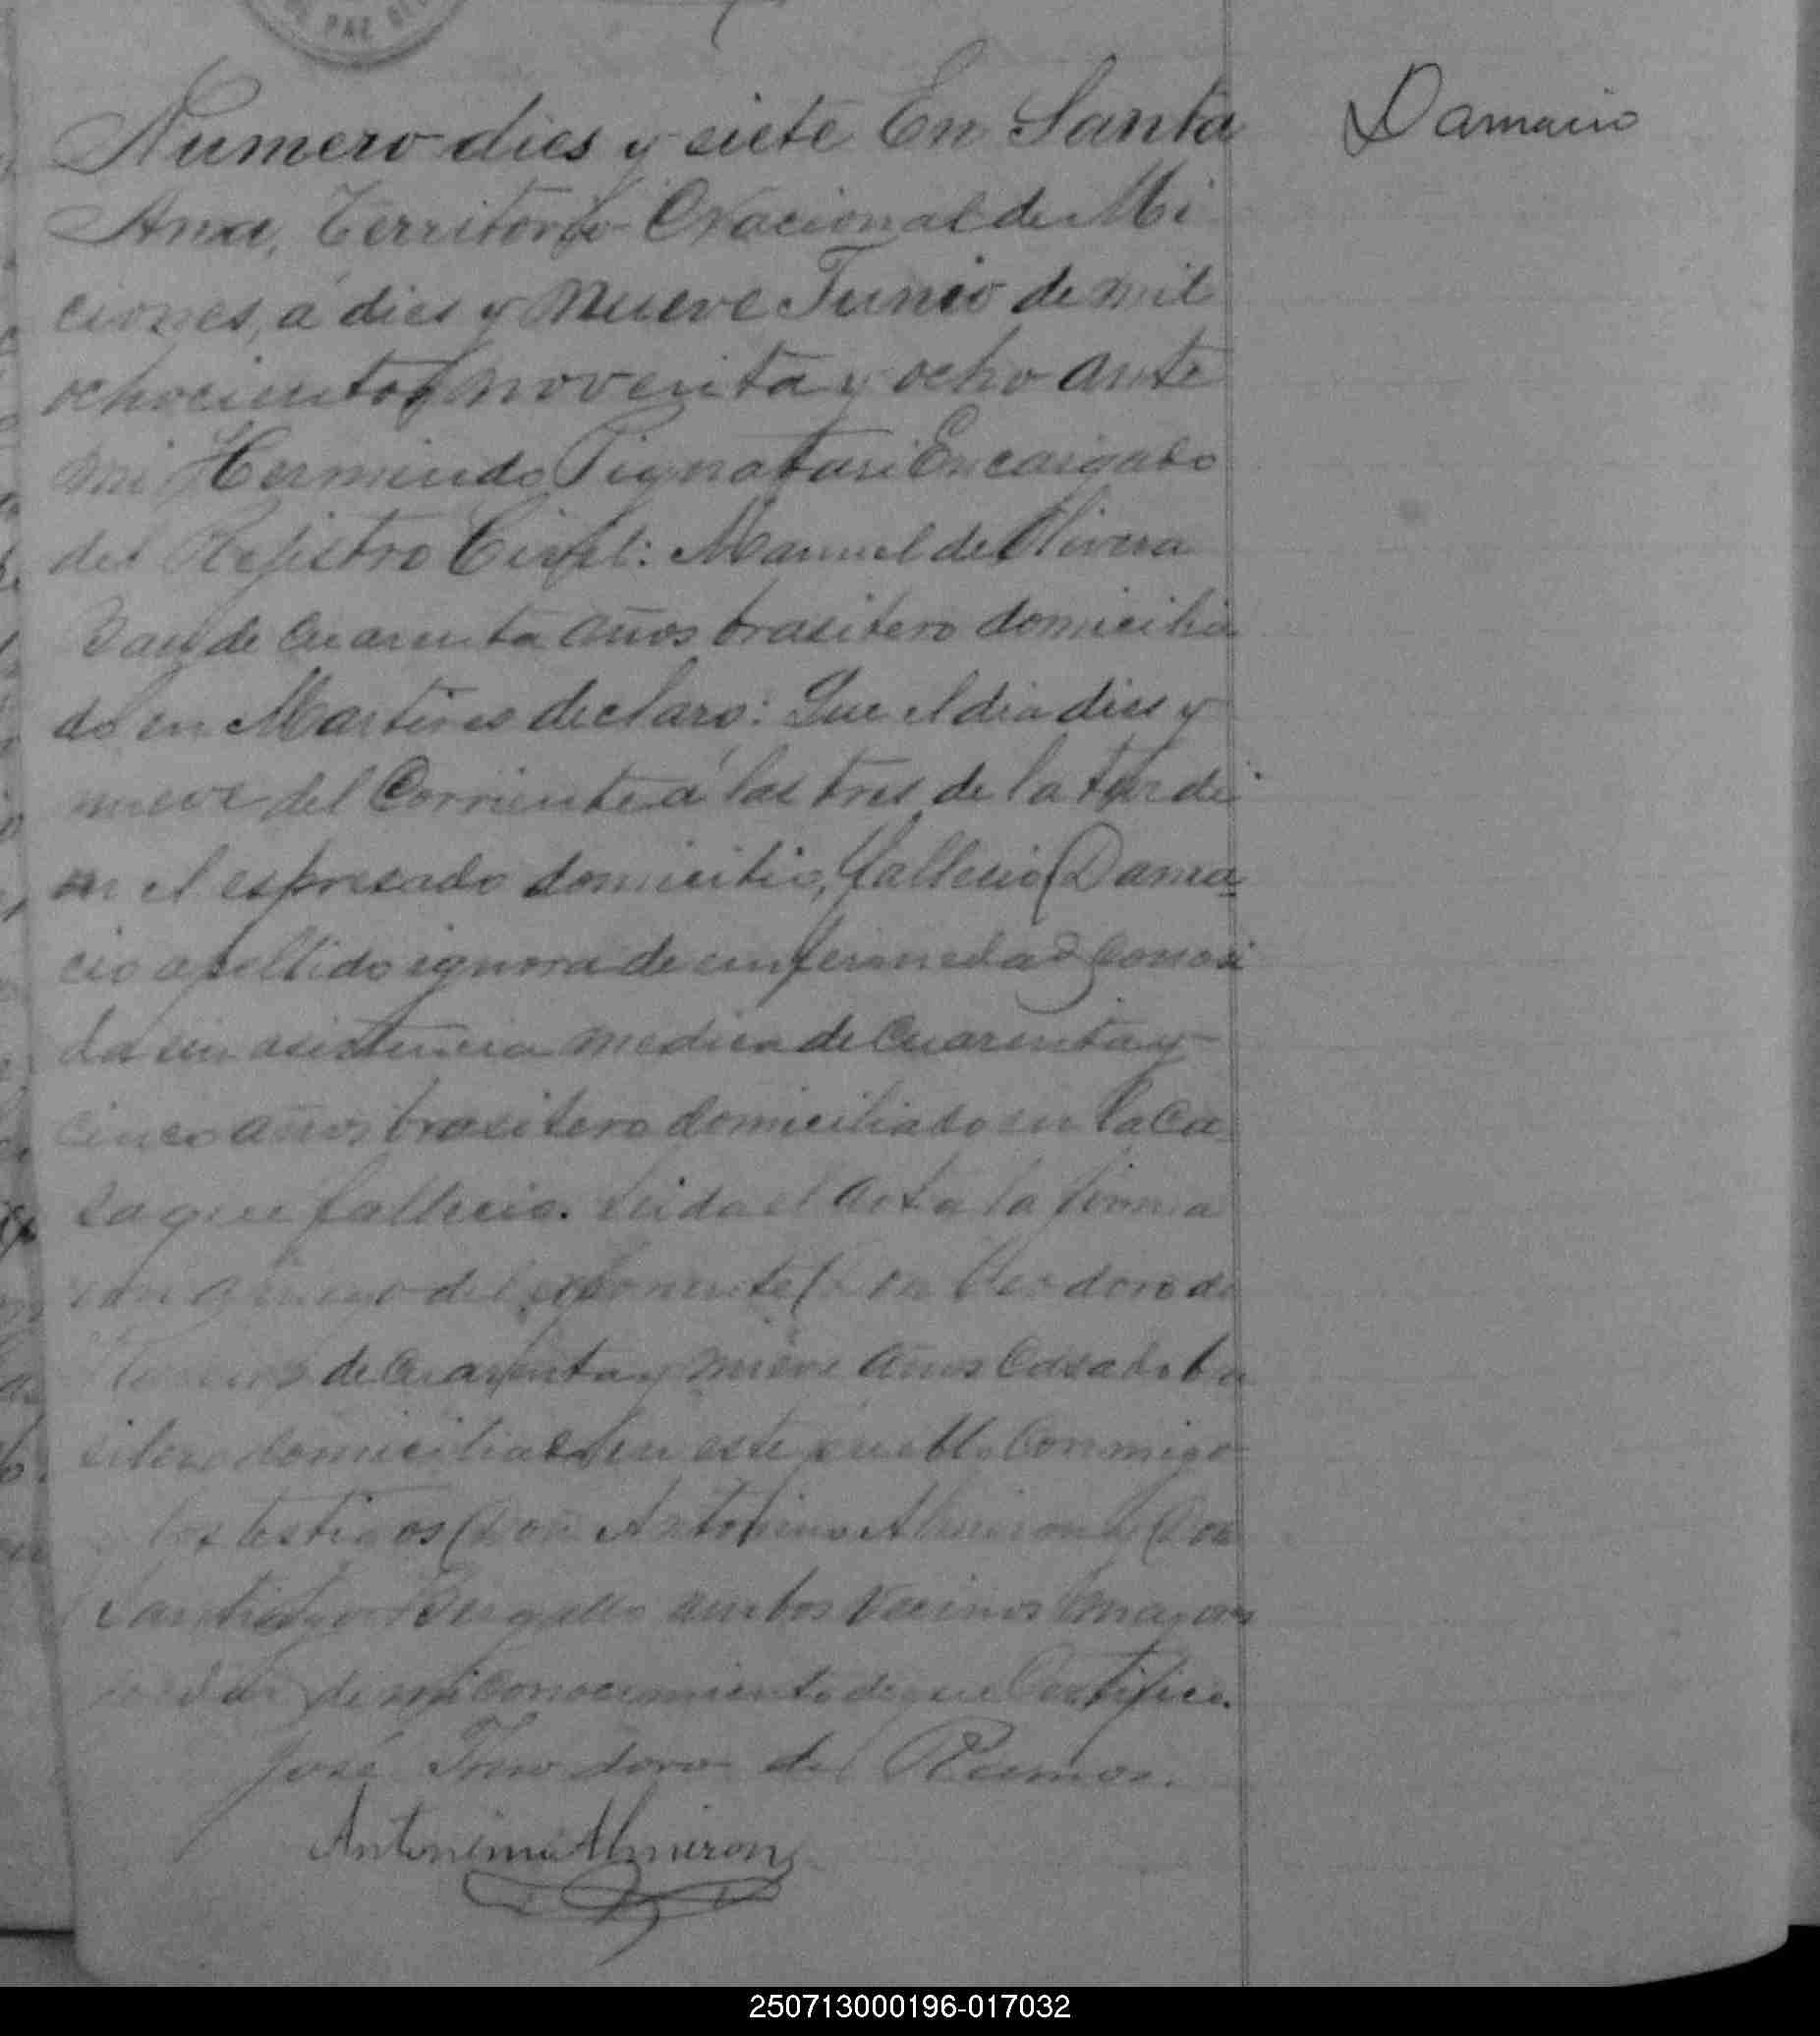 PAZ
Damacio
Numero dies y siete En Santa
Ana, Territorio Nacional de Mi
ciones, á dies y nueve Junio de mil
ochocientos noventa y ocho ante
mi Hermindo Pignatari Encargado
del Rejistro Civil: Manuel de Olivera
de cuarenta años brasilero domicilia
do en Martires declaro: Que el dia dies y
nueve del Corriente á las tres de la tarde
en el espresado domicilio, fallecio Dama
cio apellido ignora de enfermedad conosi
da sin asistencia medica de cuarenta y
cinco años brasilero domiciliado en la ca
sa que fallecio. Leida el acta la firma
a ruego del esponente Don Teodoro de
de cuarenta y nueve años casado bra
silero domiciliado en este pueblo conmigo
los testigos Don Antonino Almiron y Don
Santiago ambos vecinos mayores
de edad de mi conocimiento de que certifico.
José Theodoro de Ramos.
Antonino Almiron
250713000196-017032